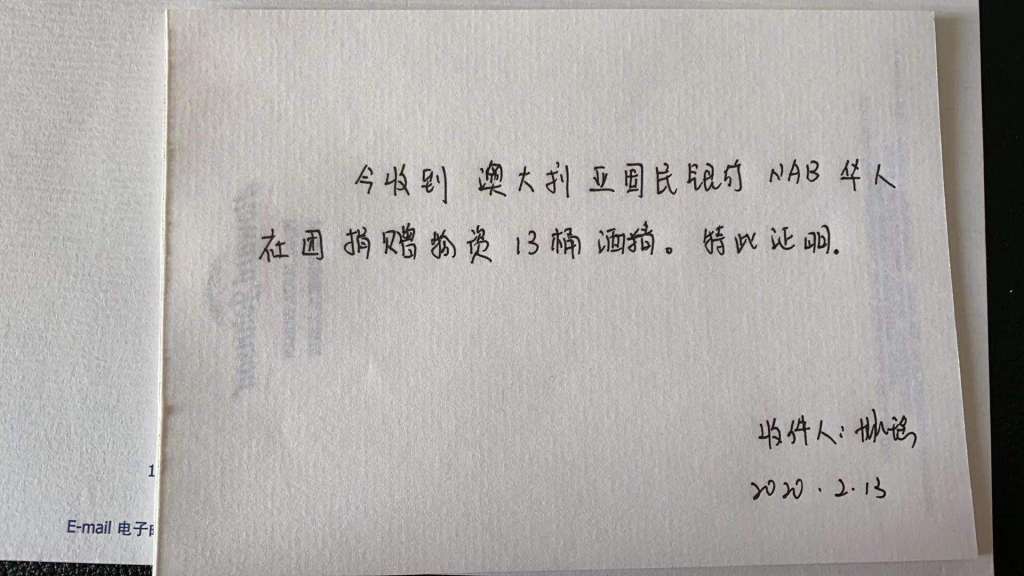 今收到 澳大利亚国民银行 NAB 华人
社团 捐赠物资 13桶 酒精。 特此证明.
收件人:
2020.2.13
E-mail 电子